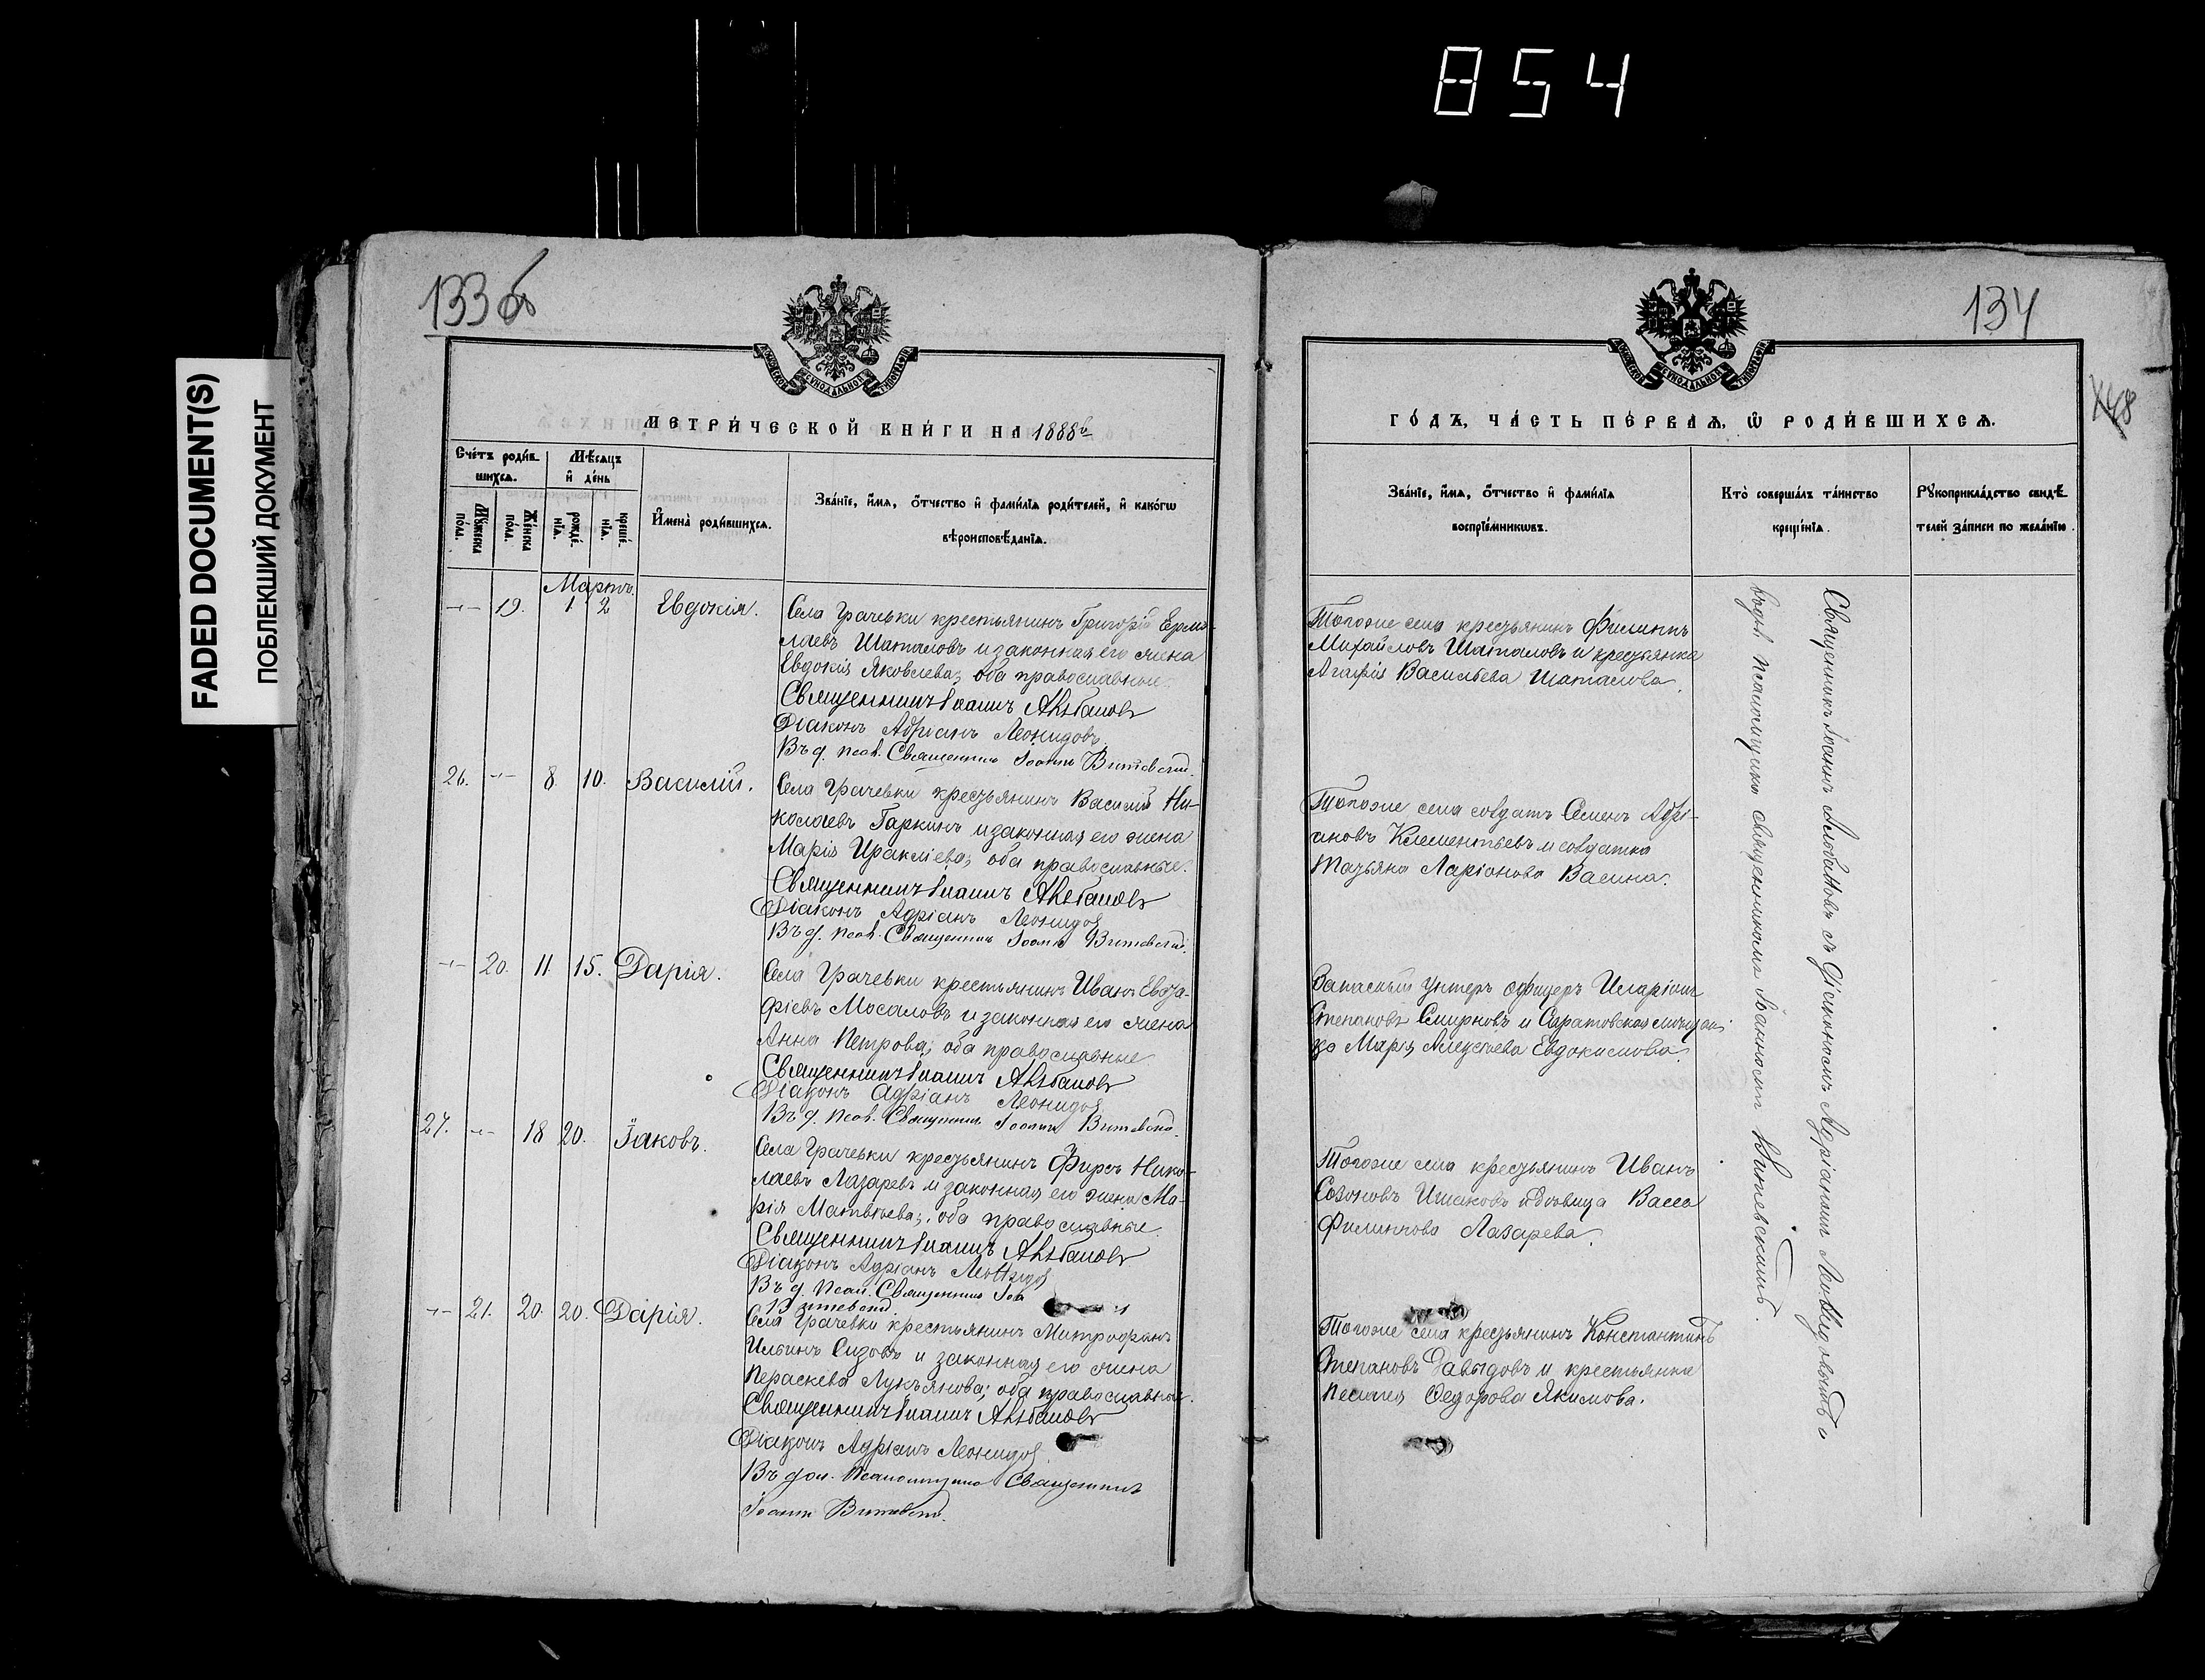 854
FADED DOCUMENT(S)
ПОБЛЕКШИЙ ДОКУМЕНТ
133 об
МЕТРИ́ЧЕСКОЙ КНИ́ГИ НА 1888й
Сче́тъ роди́в-
шихся.
Мѣ́сяцъ
и҆ де́нь
Мꙋ́жеска
по́ла.
Же́нска
по́ла.
рожде́-
нїѧ.
креще́-
нїѧ.
И҆мена̀ роди́вшихсѧ.
Зва́нїе, и҆́мѧ, ѻ҆́тчество и҆ фами́лїѧ роди́телей, и҆ како́гѡ
вѣроисповѣ́данїѧ.
Мартъ.
19. 1 2 Евдокія.
Села Грачевки крестьянинъ Григорій Ермо-
лаевъ Шаталовъ и законная его жена
Евдокія Яковлева; оба православные.
Священникъ Іоаннъ
Діаконъ Адріанъ Леонидовъ.
Въ д. псал. Священникъ Іоаннъ Витевскій.
26. 8 10. Василій.
Села Грачевки крестьянинъ Василій Ни-
колаевъ Гаркинъ и законная его жена
Марія Ираклиева; оба православные.
Священникъ Іоаннъ
Діаконъ Адріанъ Леонидовъ
Въ д. псал. Священникъ Іоаннъ Витевскій.
20. 11. 15. Дарія.
Села Грачевки крестьянинъ Иванъ
Мосаловъ и законная его жена
Анна Петрова; оба православные
Священникъ Іоаннъ
Діаконъ Адріанъ Леонидовъ
Въ д. псал. Священникъ Іоаннъ Витевскій.
27. 18 20. Іаковъ.
Села Грачевки крестьянинъ Фирсъ Нико-
лаевъ Лазаревъ и законная его жена Ма-
рія Матвѣева; оба православные.
Священникъ Іоаннъ
Діаконъ Адріанъ Леонидовъ
Въ д. Псал. Священникъ Іоа
Витевскій.
21. 20. 20. Дарія.
Села Грачевки крестьянинъ Митрофанъ
Ильинъ Сизовъ и законная его жена
Параскева Лукьянова; оба православные.
Священникъ Іоаннъ
Діаконъ Адріанъ Леонидовъ.
Въ дол. Псаломщика Священникъ
Іоаннъ Витевскій.
134
ГО́ДЪ, ЧА́СТЬ ПЕ́РВАѦ, Ѡ҆ РОДИ́ВШИХСѦ.
Зва́нїе, и҆́мѧ, ѻ҆́тчество и҆ фами́лїѧ
воспрїе́мникѡвъ.
Кто̀ соверша́лъ та́инство
креще́нїѧ.
Рꙋкоприкла́дство свидѣ́-
телей за́писи по жела́нїю.
Тогоже села крестьянинъ Филиппъ
Михайловъ Шаталовъ и крестьянка
Агафія Васильева Шаталова.
Тогоже села солдатъ Семенъ Адрі-
ановъ Клементьевъ и солдатка
Татьяна Ларіонова Васина.
Запасный унтеръ офицеръ Иларіонъ
Степановъ Смирновъ и Саратовская мѣщан-
ка Марія Алексѣева Евдокимова.
Тогоже села крестьянинъ Иванъ
Созоновъ и вдовица Васса
Филиппова Лазарева.
Тогоже села крестьянинъ Константинъ
Степановъ Давыдовъ и крестьянка
Пелагея Ѳедорова Якимова.
Священникъ Іоаннъ съ Діакономъ Адріаномъ Леонидовымъ и
въ д. псаломщика священникомъ Іоанномъ Витевскимъ.